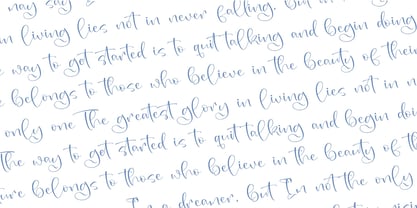 nay say
in living lies not in never falling. But
way to get started is to quit talking and begin doing
belongs to those who believe in the beauty of their
only one The greatest glory in living lies not in n
the way to get started is to quit talking and begin doi
ure belongs to those who believe in the beauty of th
I'm a dreamer. But I'm not the only